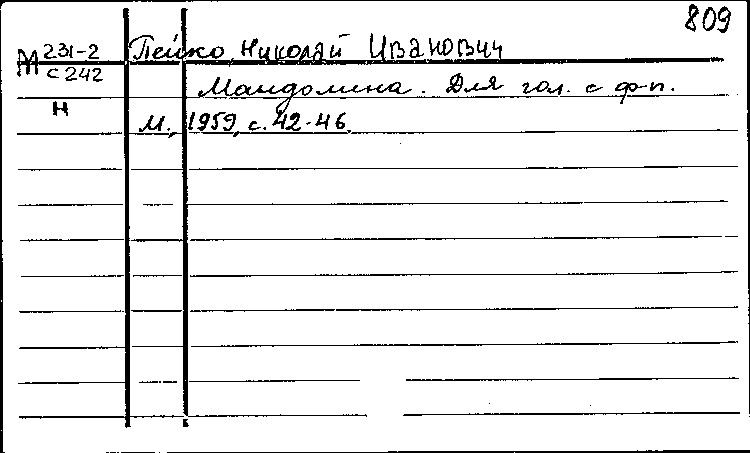 809
М 231-2 Пейко, Николай Иванович
С 242
Мандолина. Для гол. с ф-п.
Н
М., 1959, с. 42-46.